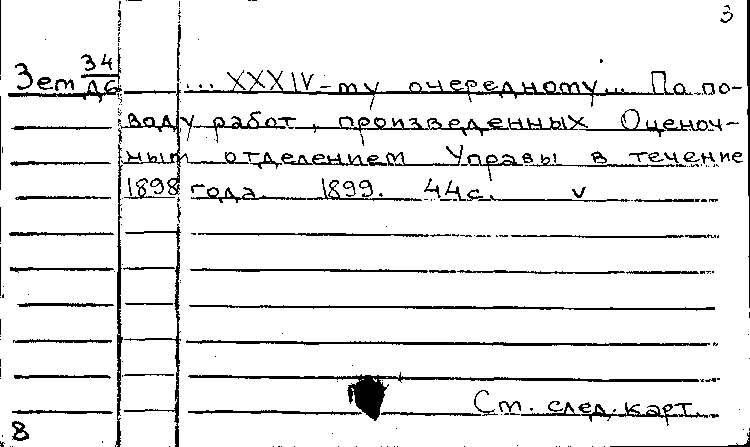 3
Зет 34/Д6 ... XXXIV-му очередному... По по-
воду работ, произведенных Оценоч-
ным отделением Управы в течение
1898 года 1899. 44с. v
См. след. карт.
8